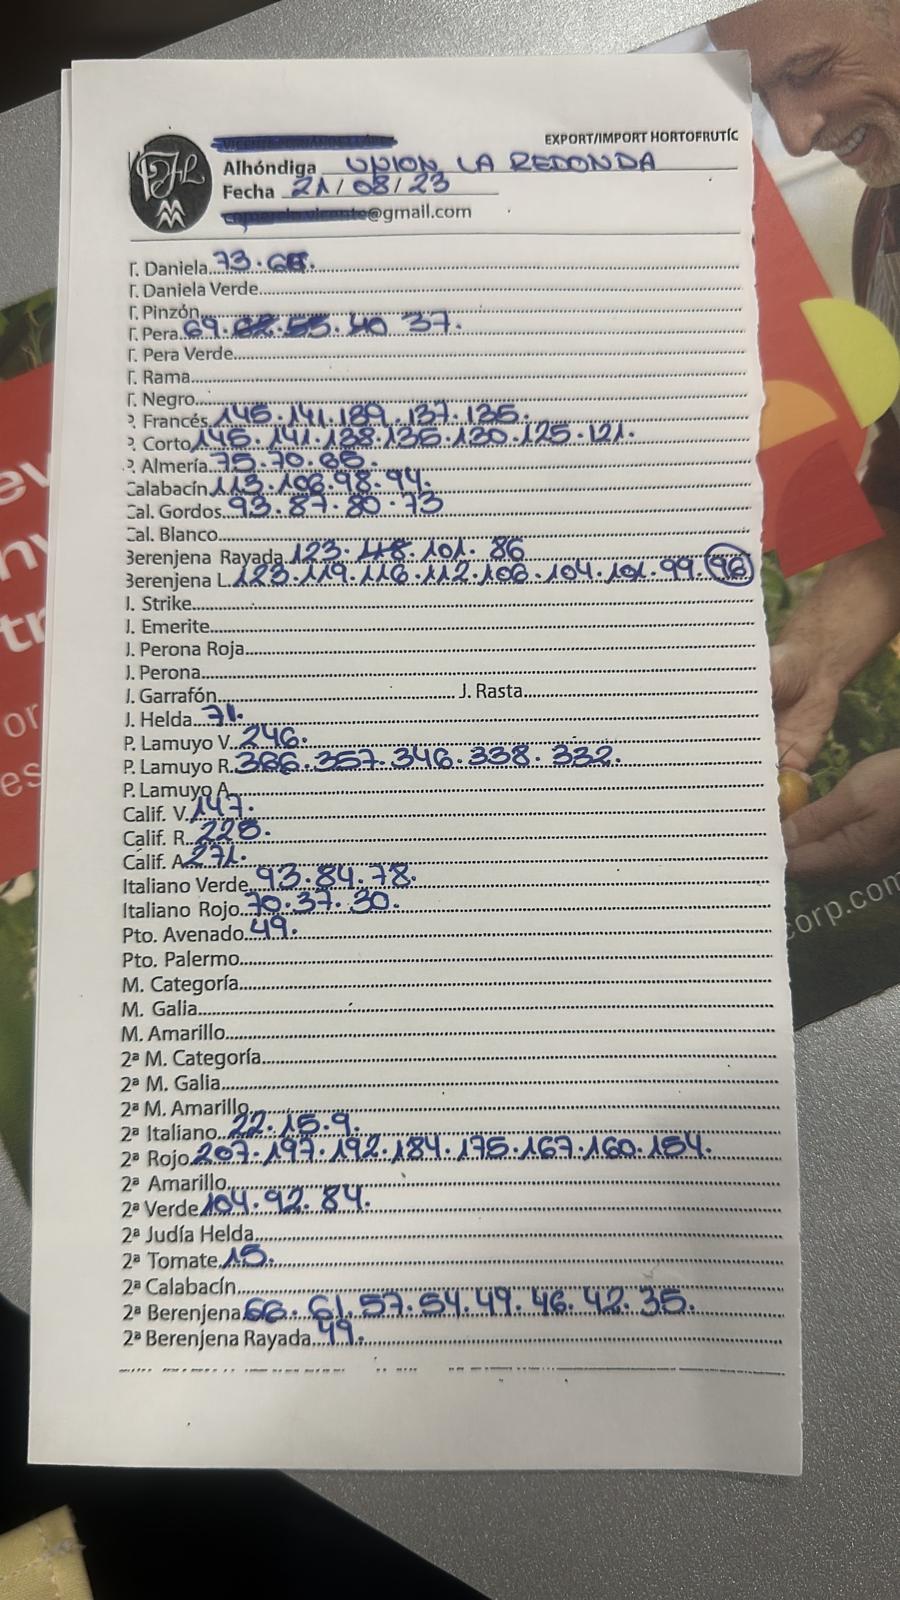 EXPORT/IMPORT HORTOFRUTÍC
Alhóndiga UNION LA REDONDA
Fecha 21/08/23
@gmail.com
T. Daniela 73.
T. Daniela Verde
T. Pinzón
T. Pera 69. 55. 40 37.
T. Pera Verde
T. Rama
T. Negro
P. Francés 145.141.139.137.135.
P. Corto 145.141.138.135.130.125.121.
P. Almería 75.70.65.
Calabacín 113.106.98.94.
Cal. Gordos 93.87.80.73
Cal. Blanco
Berenjena Rayada 123.118.101.86
Berenjena L. 123.119.116.112.106.104.101.99.96
J. Strike
J. Emerite
J. Perona Roja
J. Perona
J. Garrafón J. Rasta
J. Helda 71.
P. Lamuyo V. 246.
P. Lamuyo R. 366.357.346.338.332.
P. Lamuyo A.
Calif. V. 147.
Calif. R. 225.
Calif. A 271.
Italiano Verde 93.84.78.
Italiano Rojo 70.37.30.
Pto. Avenado 49.
Pto. Palermo
M. Categoría
M. Galia
M. Amarillo
2ª M. Categoría
2ª M. Galia
2ª M. Amarillo
2ª Italiano 22.15.9.
2ª Rojo 207.197.192.184.175.167.160.154.
2ª Amarillo
2ª Verde 104.92.84.
2ª Judía Helda
2ª Tomate 15.
2ª Calabacín
2ª Berenjena 66.61.57.54.49.46.42.35.
2ª Berenjena Rayada 49.
corp.com